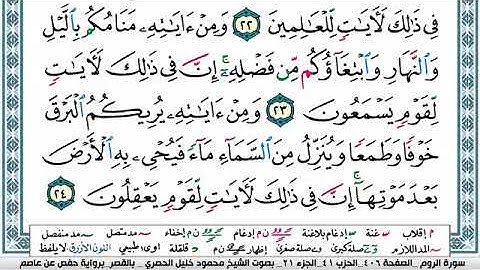 فِى ذَٰلِكَ لَـَٔايَـٰتٍ لِّلْعَـٰلِمِينَ ٢٢ وَمِنْ ءَايَـٰتِهِۦ مَنَامُكُم بِٱلَّيْلِ
وَٱلنَّهَارِ وَٱبْتِغَآؤُكُم مِّن فَضْلِهِۦٓ ۚ إِنَّ فِى ذَٰلِكَ لَـَٔايَـٰتٍ
لِّقَوْمٍ يَسْمَعُونَ ٢٣ وَمِنْ ءَايَـٰتِهِۦ يُرِيكُمُ ٱلْبَرْقَ
خَوْفًا وَطَمَعًا وَيُنَزِّلُ مِنَ ٱلسَّمَآءِ مَآءً فَيُحْىِۦ بِهِ ٱلْأَرْضَ
بَعْدَ مَوْتِهَآ ۚ إِنَّ فِى ذَٰلِكَ لَـَٔايَـٰتٍ لِّقَوْمٍ يَعْقِلُونَ ٢٤
م إقلاب غنة إدغام بلاغنة إدغام إخفاء مد متصل مد منفصل
المد اللازم صلة كبرى صلة صغرى إظهار قلقلة طبيعي اللون الأزرق لا يلفظ
سورة الروم_ الصفحة ٤٠٦_ الحزب ٤١_ الجزء ٢١_ بصوت الشيخ محمود خليل الحصري _ بالقصر_ برواية حفص عن عاصم